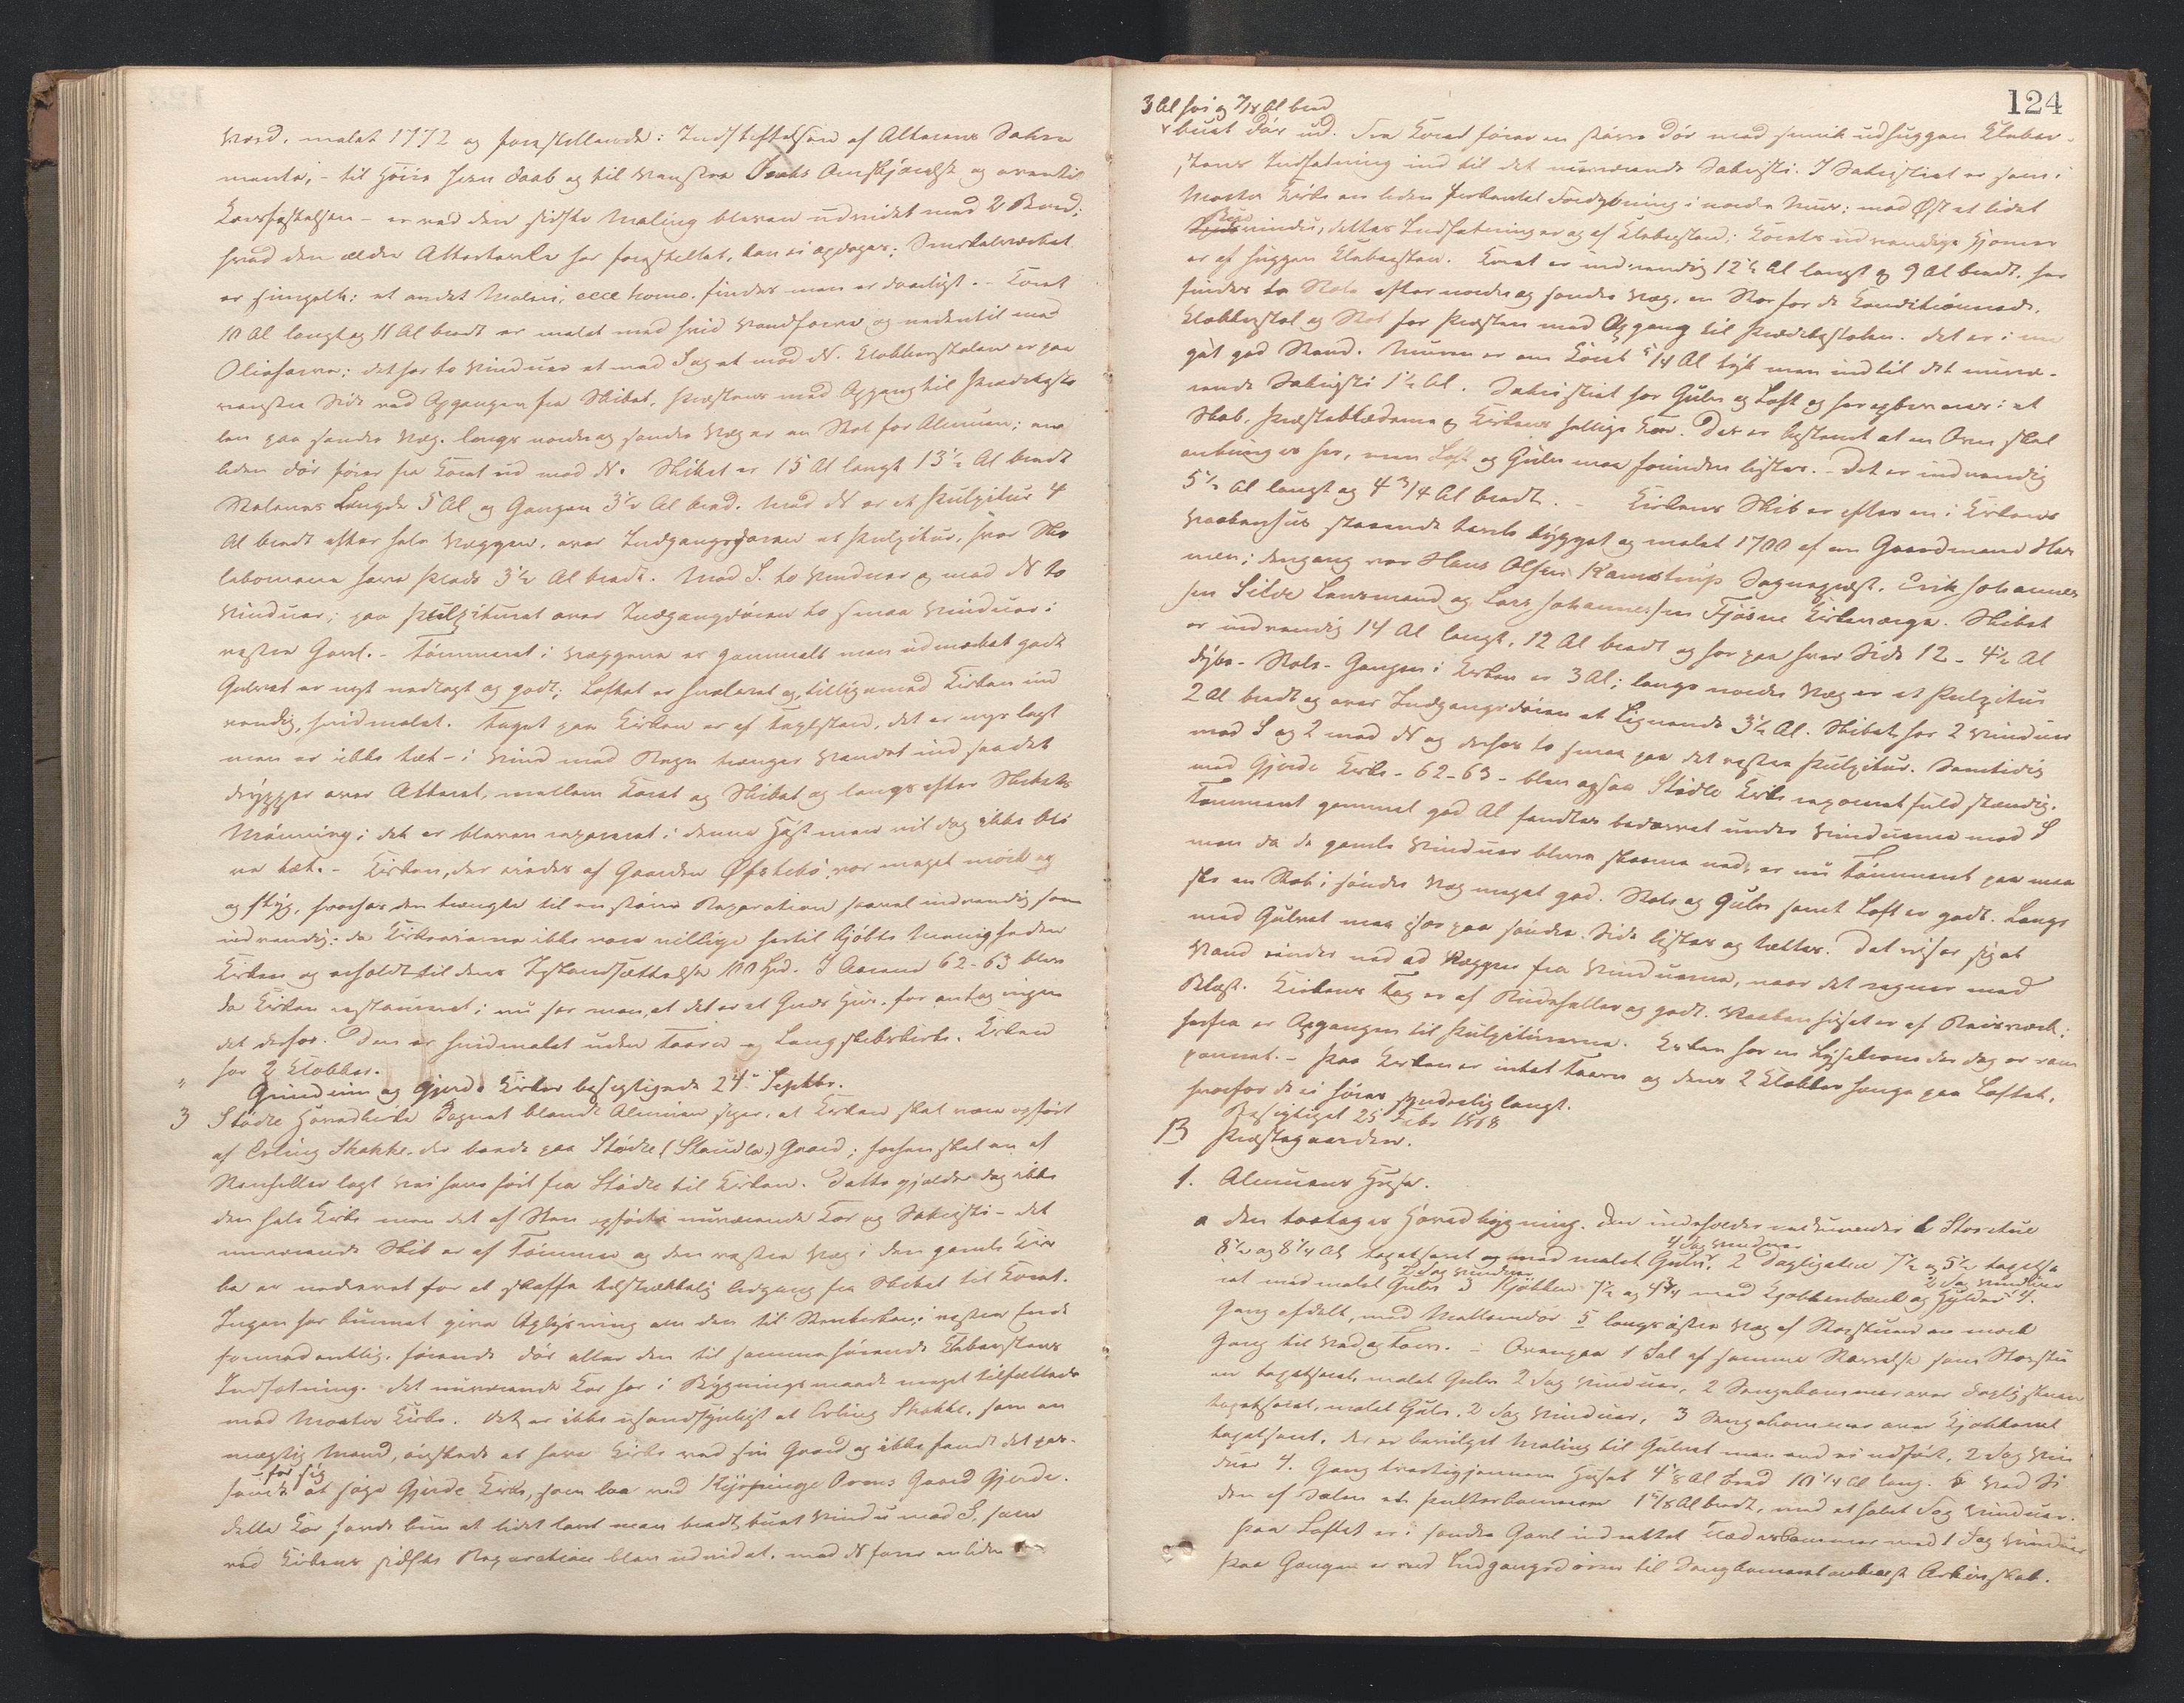 værd, malet 1772 og forestillende: Indstiftelsen af Alterens Sakra
mente, – til Høire Jesu Daab og til venstre Omskjærelse og oventil
Korsfæstelsen – er ved den sidste Maling bleven udvidet med 2 Bord;
hvad den ældre Altertavle har forestillet, kan ei opdages;
er simpelt: et andet Maleri, ecce homo. findes men er daarligt. – Koret
10 Al langt og 11 Al bredt er malet med hvid Vandfarve og nedentil med
Oliefarve; det har to Vinduer et mod S og et mod N. Klokkerstolen er paa
venstre Side ved Opgangen fra Skibet, Præstens med Opgang til Prædikesto
len paa søndre Væg. langs nordre og søndre Væg er en Stol for Almuen; en
liden Dør fører fra Koret ud mod N. Skibet er 15 Al langt 13½ Al bredt
Stolenes Længde 5 Al og Gangen 3½ Al bred. Mod N er et Pulpitur 4
Al bredt efter hele Væggen, over Indgangsdøren et Pulpitur, hvor Sko
lebørnene have Plads 3½ Al bredt. Mod S. to Vinduer og mod N to
Vinduer; paa Pulpituret over Indgangsdøren to smaa Vinduer i
vestre Gavl. – Tømmeret i Væggene er gammelt men udmærket godt
Gulvet er nyt nedlagt og godt; Loftet er hvælvet og, tilligemed Kirken ind
vendig, hvidmalet. Taget paa Kirken er af Taglsten, det er nys lagt
men er ikke tæt – i Vind med Regn trænger Vandet ind saa det
drypper over Alteret, mellem Koret og Skibet og langs efter Skibets
Mønning; det er bleven repareret i denne Høst men vil dog ikke bli
ve tæt. – Kirken, der eiedes af Gaarden Øfstebø, var meget mørk og
og styg, hvorfor den trængte til en større Reparation saavel indvendig som
udvendig: da Kirkeeierne ikke vare villige hertil kjøbte Menigheden
Kirken og erholdt til dens Istandsættelse 100 Spd. I Aarene 62-63 blev
da Kirken restaureret; nu ser man, at det er et Guds Hus, før antog ingen
det derfor. Den er hvidmalet uden Taarn og Langskibskirke. Kirken
har 2 Klokker.
" Grindeim og Gjerde Kirker besigtigede 24de Septbr.
3 Stødle Hovedkirke Sagnet blandt Almuen siger, at Kirken skal være opført
af Erling Skakke, der boede paa Stødle (Staudle) Gaard; forhen skal en af
Stenheller lagt Vei have ført fra Stødle til Kirken. Dette gjælder dog ikke
den hele Kirke men det af Sten opførte nuværende Kor og Sakristi – det
nuværende Skib er af Tømmer og den vestre Væg i den gamle Kir
ke er nedrevet for at skaffe tilstrækkelig Adgang fra Skibet til Koret.
Ingen har kunnet give Oplysning om den til Stenkirken i vestre Ende
formodentlig førende Dør eller den til samme hørende Klæberstens
Indfatning. Det nuværende Kor har i Bygningsmaade meget tilfælleds
med Moster Kirke. Det er ikke usandsynligt at Erling Skakke, som en
mægtig Mand, ønskede at have Kirke ved sin Gaard og ikke fandt det pas-
sende for sig at søge Gjerde Kirke, som laa ved Kyrpinge Orms Gaard Gjerde.
dette Kor havde kun et lidet lavt men bredt buet Vindu mod S, som
ved Kirkens sidste Reparation blev udvidet, mod N fører en liden
124
3 Al høi og 7/8 Al bred
buet Dør ud. Fra Koret fører en større Dør med smuk udhuggen Kleber-
stens Indfatning ind til det nuværende Sakristi. I Sakristiet er som i
Moster Kirke en liden firkantet Fordybning i nordre Mur; mod Øst et lidet
Vindu, dettes Indfatning er og af Klebersten; Korets udvendige Hjørner
er af huggen Klebersten. Koret er indvendig 12½ Al langt og 9 Al bredt, her
findes to Stole efter nordre og søndre Væg, en Stor for de Konditionerede,
Klokkerstol og Stol for Præsten med Opgang til Prædikestolen. Det er i me
get god Stand. Muren er om Koret 5/4 Al tyk men indtil det nuvæ-
rende Sakristi 1½ Al. Sakristiet har Gulv og Loft og her opbevares i et
Skab, Præsteklæderne og Kirkens hellige Kar. Det er bestemt at en Ovn skal
anbringes her, men Loft og Gulv maa forinden listes. – Det er indvendig
5½ Al langt og 4¾ Al bredt. – Kirkens Skib er efter en i Kirkens
Vaabenhus staaende Tavle bygget og malet 1700 af en Gaardmand Her
men; dengang var Hans Olsen Ramstrup Sognepræst, Erik Johannes
sen Silde Lensmand og Lars Johannessen Fjøsne Kirkeværge. Skibet
er indvendig 14 Al langt, 12 Al bredt og har paa hver Side 12 – 4½ Al
dybe – Stole – Gangen i Kirken er 3 Al; langs nordre Væg er et Pulpitur
2 Al bredt og over Indgangsdøren et Lignende 3½ Al. Skibet har 2 Vinduer
mod S og 2 mod N og desfor to smaa paa det vestre Pulpitur. Samtidig
med Gjerde Kirke – 62-63 – blev ogsaa Stødle Kirke repareret fuldstændig.
Tømmeret gammel god Al fandtes bedærvet under Vinduerne mod S
men da de gamle Vinduer bleve skaarne ned, er nu Tømmeret paa maa
ske en Stok i søndre Væg meget god. Stole og Gulv samt Loft er godt. Langs
med Gulvet maa især paa søndre Side listes og tættes. Det viser sig at
Vand rinder ned ad Væggen fra Vinduerne, naar det regner med
Blæst. Kirkens Tag er af Rudeheller og godt. Vaabenhuset er af Reisværk;
herfra er Opgangen til Pulpiturerne. Kirken har en Lysekrone der dog er ram
poneret. – Paa Kirken er intet Taarn og dens 2 Klokker hænge paa Loftet,
hvorfor de ei høres synderlig langt.
Besigtiget 25 Febr 1868
B Præstegaarden.
1. Almuens Huse.
a den toetages Hovedbygning. Den indeholder nedenunder 1 Storstue
8½ og 8¼ Al tapetseret og med malet Gulv, 4 Fag Vinduer 2 Dagligstue 7½ og 5½ tapetse
ret med malet Gulv 2 Fag Vinduer 3 Kjøkken 7½ og 4¾ med Kjøkkenbænk og Hylder 2 Fag Vinduer 4.
Gang afdelt, med Mellemdør 5 langs østre Væg af Storstuen en mørk
Gang til Ved og Torv. – Ovenpaa 1 Sal af samme Størrelse som Storstu
en tapetseret, malet Gulv 2 Fag Vinduer, 2 Sengekammer over Dagligstuen
tapetseret, malet Gulv, 2 Fag Vinduer, 3 Sengekammer over Kjøkkenet
tapetseret, der er bevilget Maling til Gulvet men end ei udført, 2 Fag Vin
duer 4. Gang tvertigjennem Huset 4⅛ Al bred 10¼ Al lang. 5 ved Si
den af Salen et Pulterkammer 1⅝ Al bredt, med et halvt Fag Vinduer.
Paa Loftet er i søndre Gavl indrettet Klædekammer med 1 Fag Vinduer
Paa Gangen er ved Indgangsdøren til Sengkammeret anbragt Arkivskab.